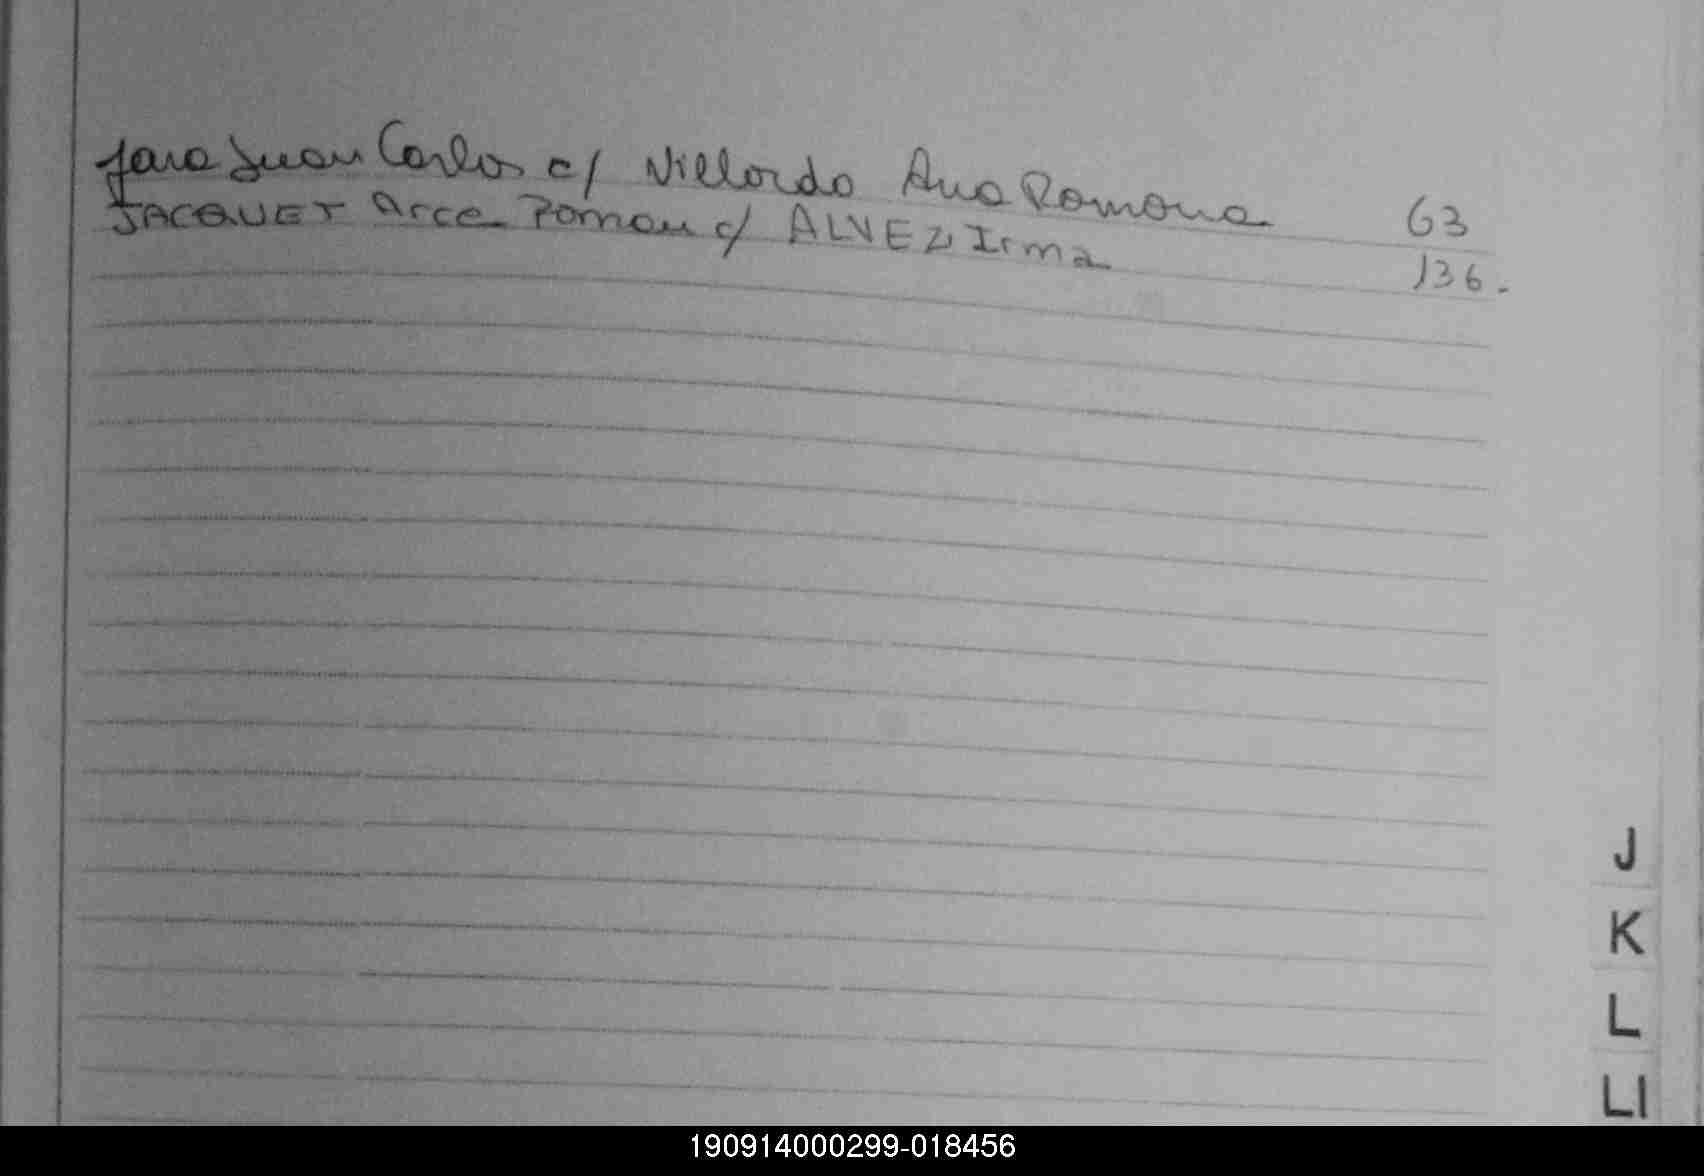 Jara Juan Carlos c/ Villordo Ana Romona 63
JACQUET Arce Roman c/ ALVEZ Irma 136.
J
K
L
Ll
190914000299-018456